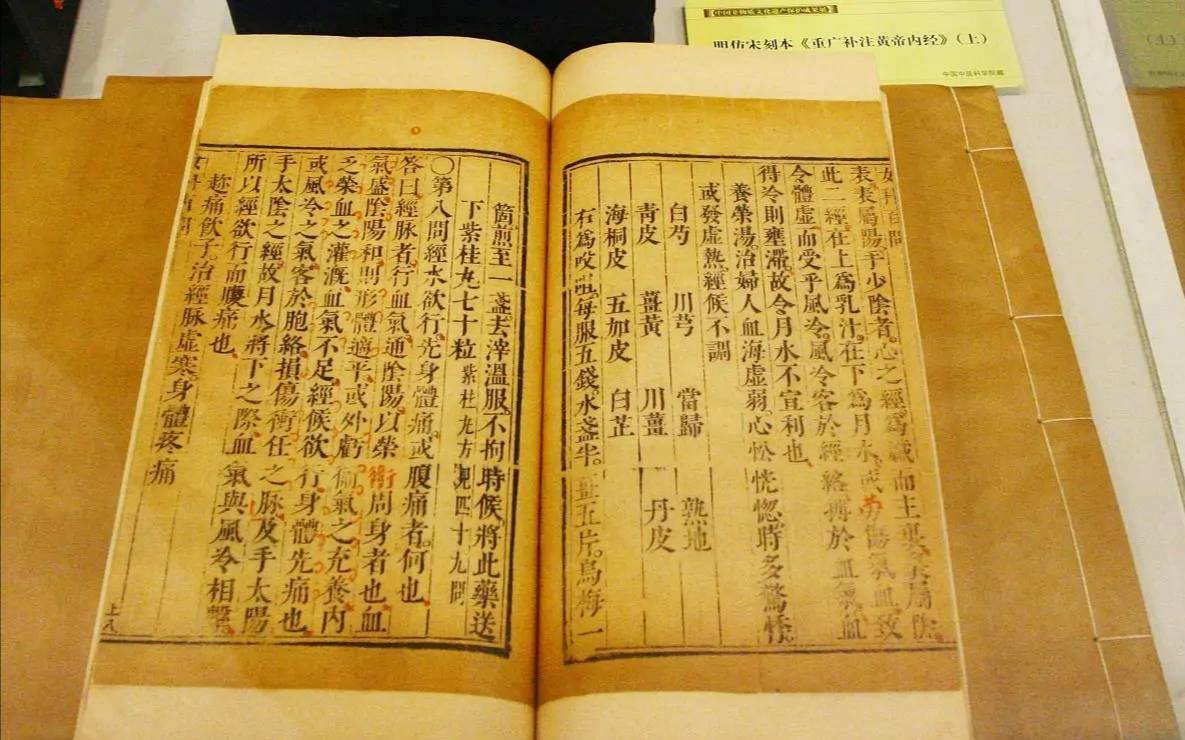 中国非物质文化遗产保护成果展
明仿宋刻本《重广补注黄帝内经》（上）
中国中医科学院藏
（上）
女科百問
表表屬陽手少陰者心之經爲臟而主裏裏屬陰
此二經在上爲乳汁在下爲月水或勞傷氣血致
令體虛而受乎風冷風冷客於經絡搏於血氣血
得冷則壅滯故令月水不宣利也
養榮湯治婦人血海虛弱心忪恍惚時多驚悸
或發虛熱經候不調
白芍 川芎 當歸 熟地
青皮 薑黃 川薑 丹皮
海桐皮 五加皮 白芷
右爲㕮咀每服五錢水盞半薑五片烏梅一
箇煎至一盞去滓溫服不拘時候將此藥送
下紫桂丸七十粒紫桂丸方見四十九問
〇第八問經水欲行先身體痛或腹痛者何也
答曰經脈者行血氣通陰陽以榮衛周身者也血
氣盛陰陽和則形體適平或外虧衛氣之充養內
乏榮血之灌溉血氣不足經候欲行身體先痛也
或風冷之氣客於胞絡損傷衝任之脈及手太陽
手太陰之經故月水將下之際血氣與風冷相擊
所以經欲行而腹痛也
趂痛飲子治經脈虛寒身體疼痛
上八